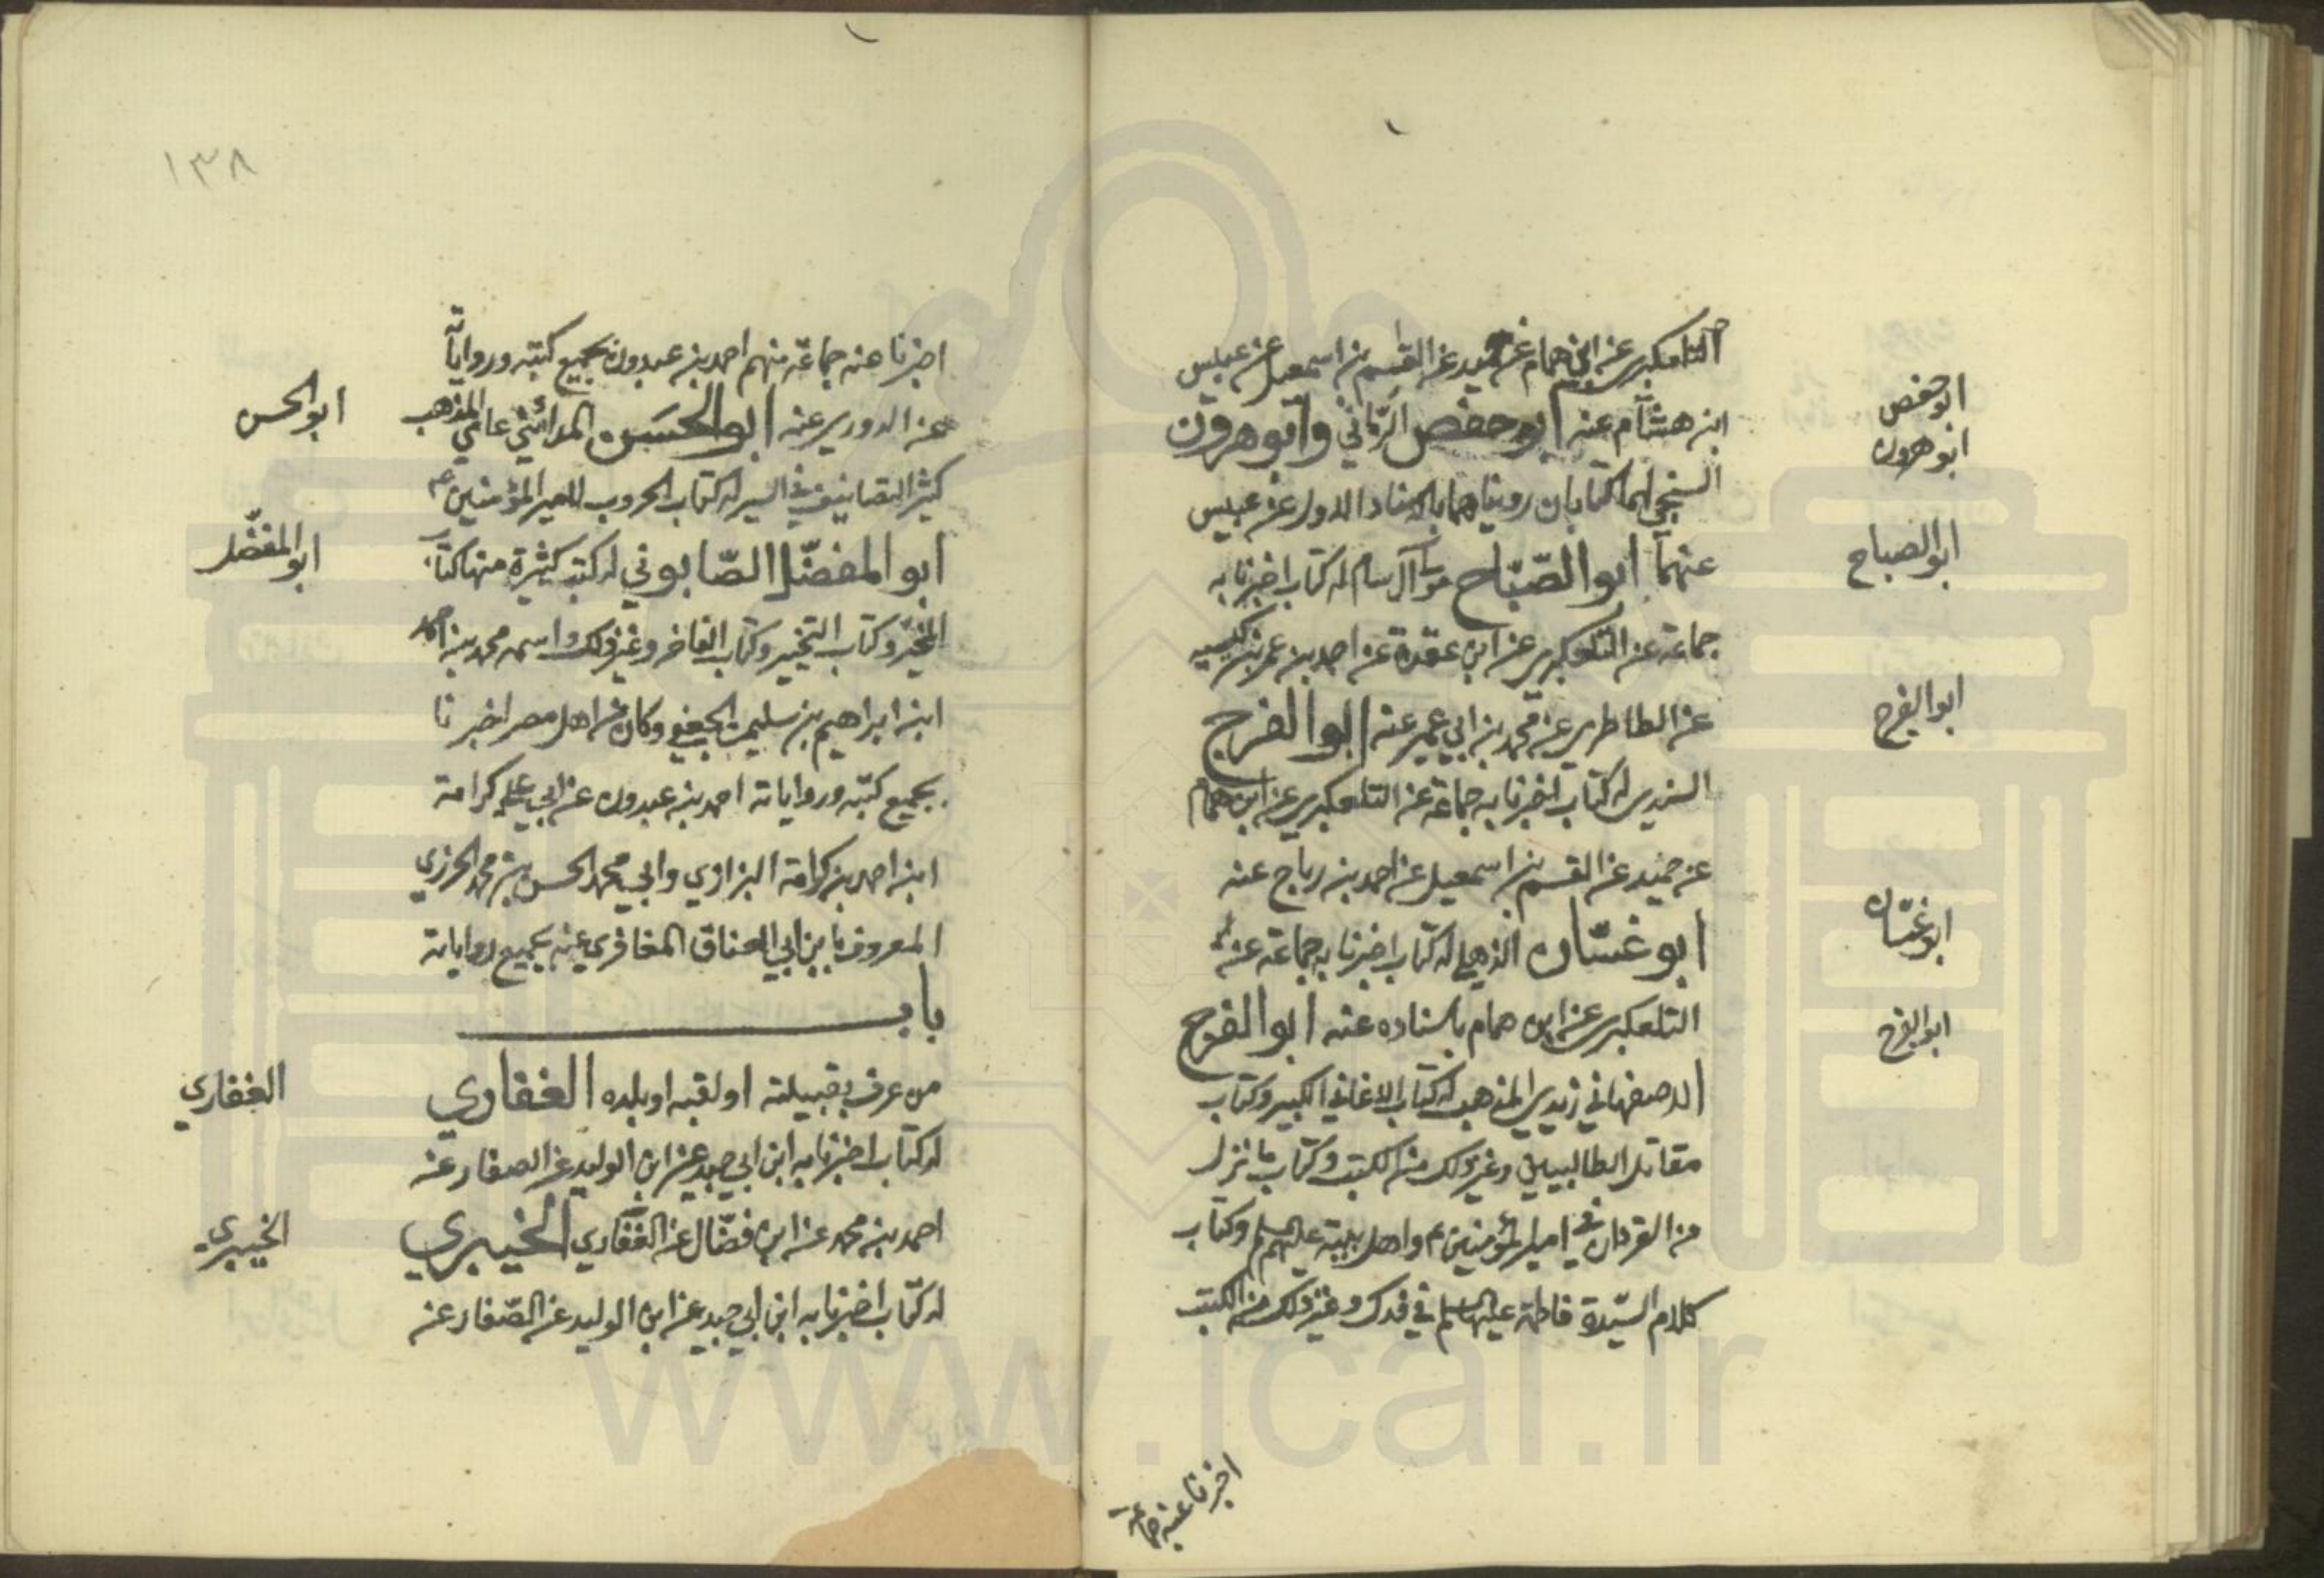 التلعكبري عن ابن همام عن حميد عن القسم بن اسمعيل عن عبيس
ابن هشام عنه ابو حفص الرماني وابو هرون
السنجي لهما كتابان رويناهما بالاسناد الاول عن عبيس
عنهما ابو الصباح مولى آل سام له كتاب اخبرنا به
جماعة عن التلعكبري عن ابن عقدة عن احمد بن عمر بن كيسبه
عن الطاطري عن محمد بن ابي عمير عنه ابو الفرج
السندي له كتاب اخبرنا به جماعة عن التلعكبري عن ابن همام
عن حميد عن القسم بن اسمعيل عن احمد بن رباح عنه
ابو غسّان الذهلي له كتاب اخبرنا به جماعة عن
التلعكبري عن ابن همام باسناده عنه ابو الفرج
الاصفهاني زيدي المذهب له كتاب الاغاني الكبير وكتاب
مقاتل الطالبيين وغير ذلك من الكتب وكتاب ما نزل
من القرءان في امير المؤمنين ع واهل بيته عليهم السلم وكتاب
كلام السيّدة فاطمة عليها السلم في فدك وغير ذلك من الكتب
اخبرنا عنه جماعة
ابو حفص
ابو هرون
ابو الصباح
ابو الفرج
ابو غسّان
ابو الفرج
١٣٨
اخبرنا عنه جماعة منهم احمد بن عبدون بجميع كتبه ورواياته
عن الدوري عنه ابو الحسن المدائني عامي المذهب
كثير التصانيف في السير له كتاب الحروب لامير المؤمنين ع
ابو المفضّل الصّابوني له كتب كثيرة منها كتاب
المخبر وكتاب التخيير وكتاب الفاخر وغير ذلك واسمه محمد بن احمد
ابن ابراهيم بن سليمن الجعفي وكان من اهل مصر اخبرنا
بجميع كتبه ورواياته احمد بن عبدون عن ابي علي كرامة
ابن احمد بن كرامة البزازي وابي محمد الحسن بن محمد الخرزي
المعروف بابن ابي العناق المغافري عنه بجميع رواياته
باب
من عرف بقبيلته او لقبه او بلده الغفاري
له كتاب اخبرنا به ابن ابي جيد عن ابن الوليد عن الصفار عن
احمد بن محمد عن ابن فضّال عن الغفاري الخيبري
له كتاب اخبرنا به ابن ابي جيد عن ابن الوليد عن الصّفار عن
ابو الحسن
ابو المفضّل
الغفاري
الخيبري
www.ical.ir